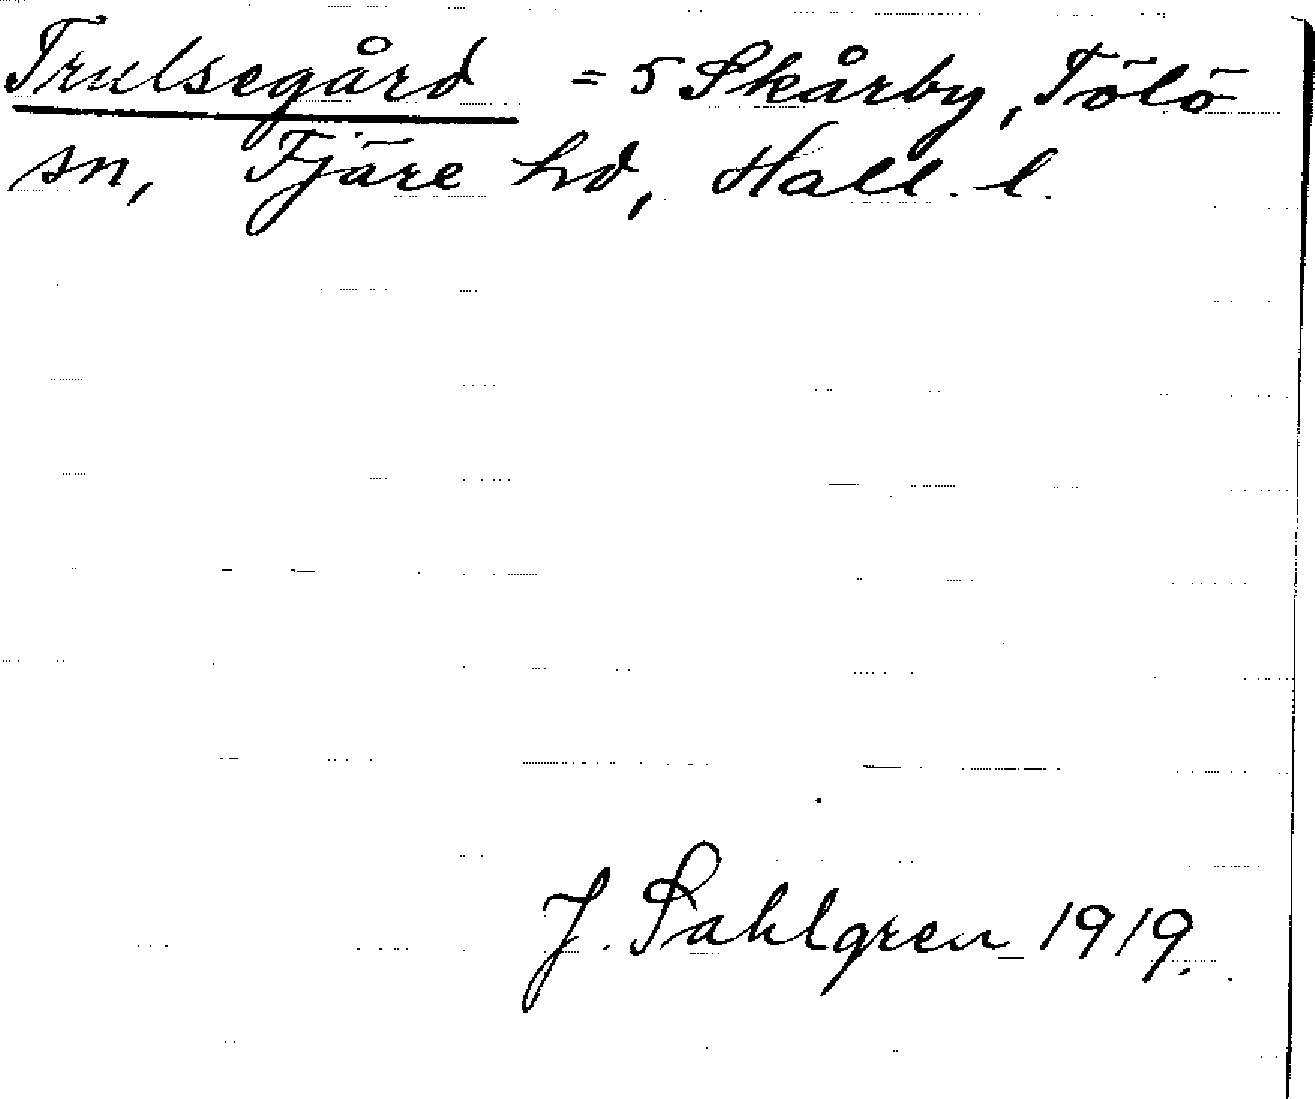 Trulsegård = 5 Skårby, Tölö
sn, Fjäre hd, Hall. l.
J. Sahlgren 1919.